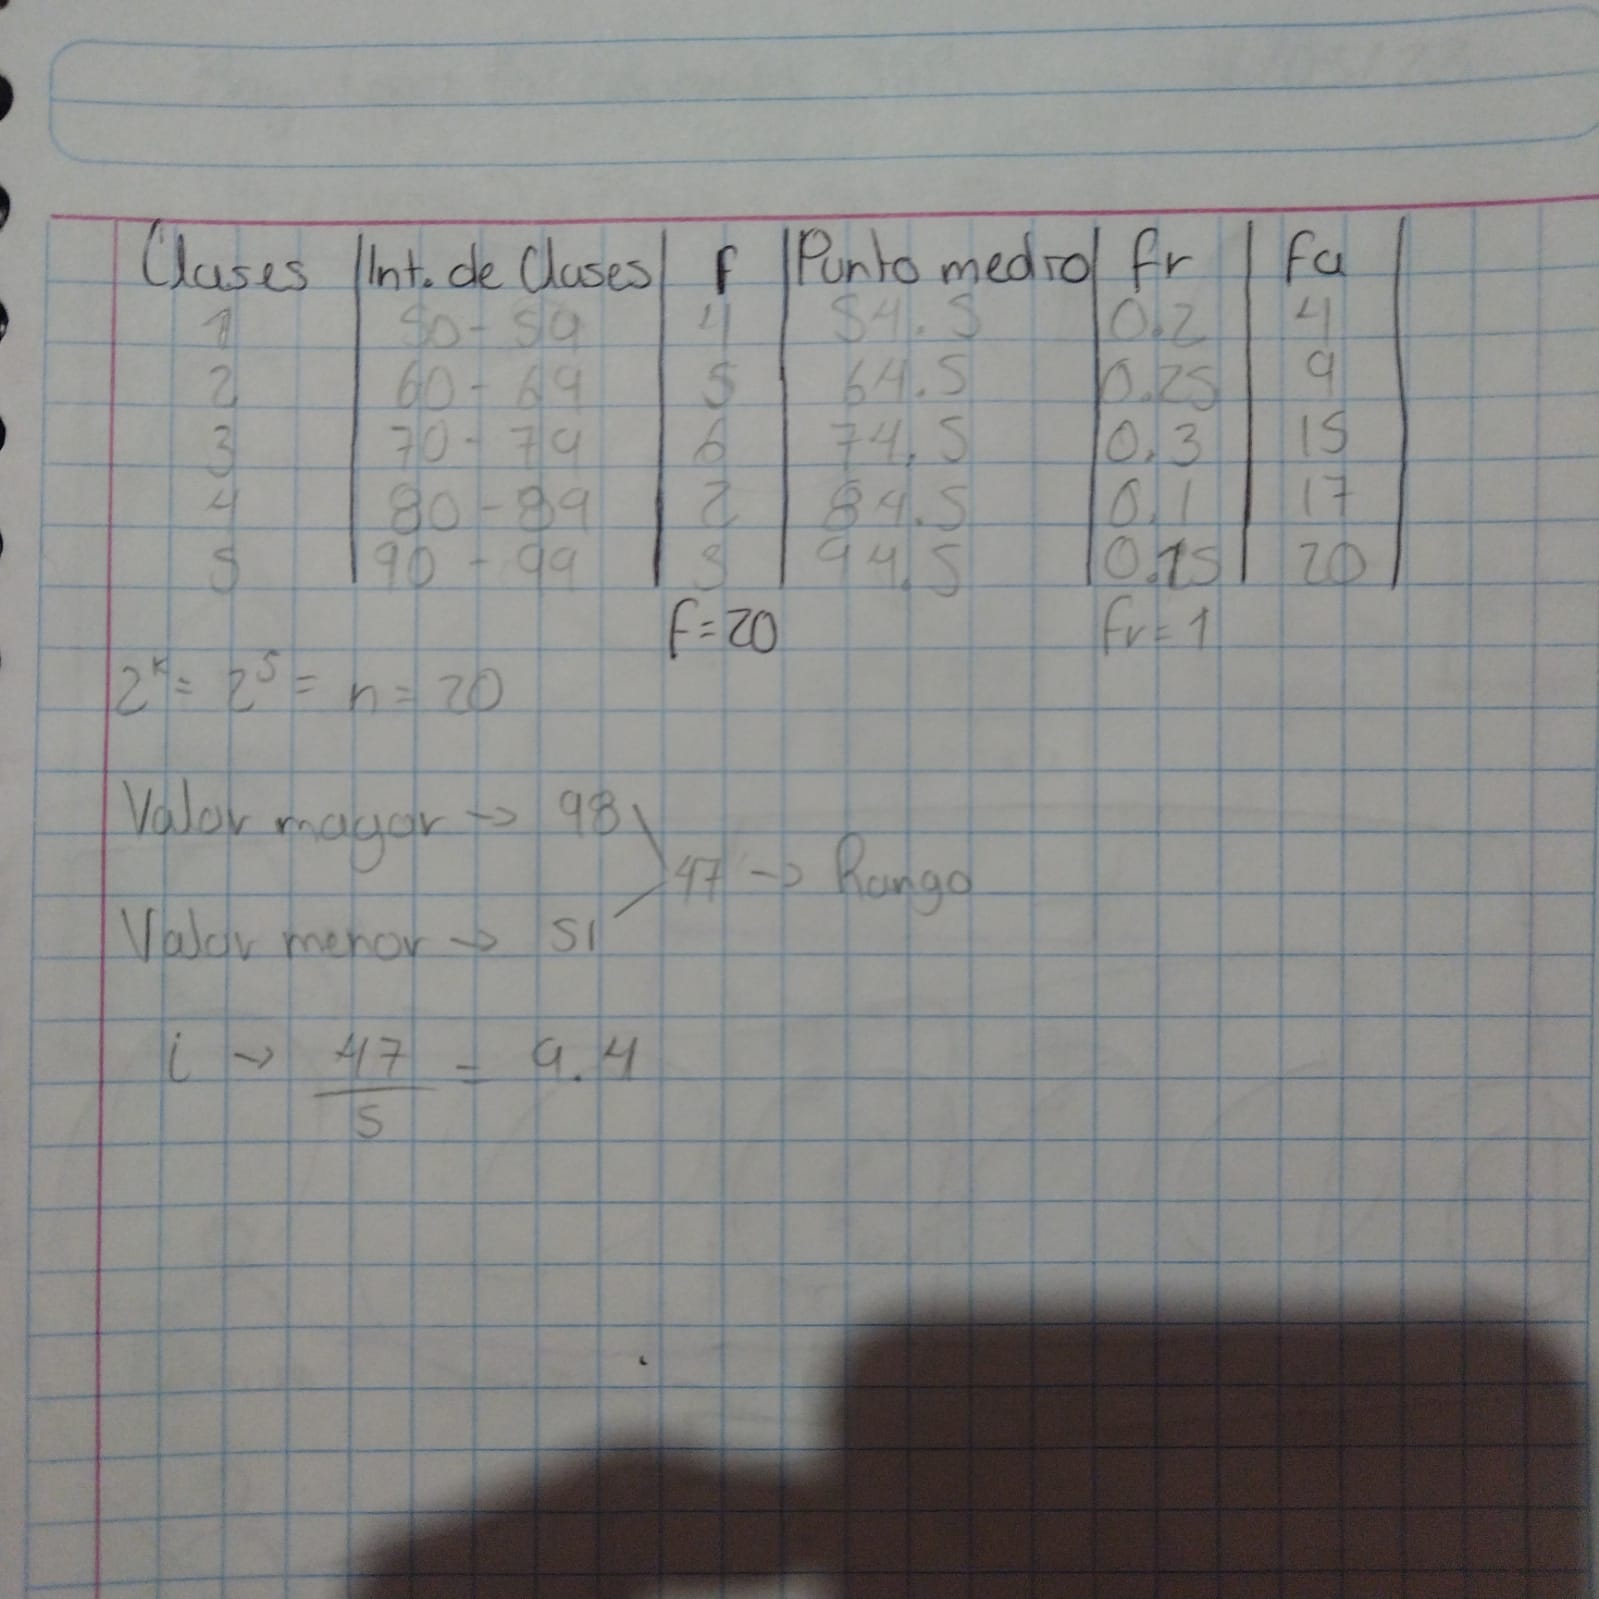 Clases Int. de Clases f Punto medio fr fa
1 50 - 59 4 54.5 0.2 4
2 60 - 69 5 64.5 0.25 9
3 70 - 79 6 74.5 0.3 15
4 80 - 89 2 84.5 0.1 17
5 90 - 99 3 94.5 0.15 20
f = 20 fr = 1
2^k = 2^5 = n = 20
Valor mayor → 98
47 → Rango
Valor menor → 51
i → 47/5 = 9.4